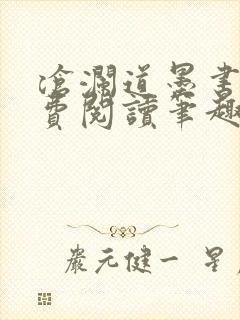 滄瀾道墨書
費閱讀筆趣
嚴元健一 星